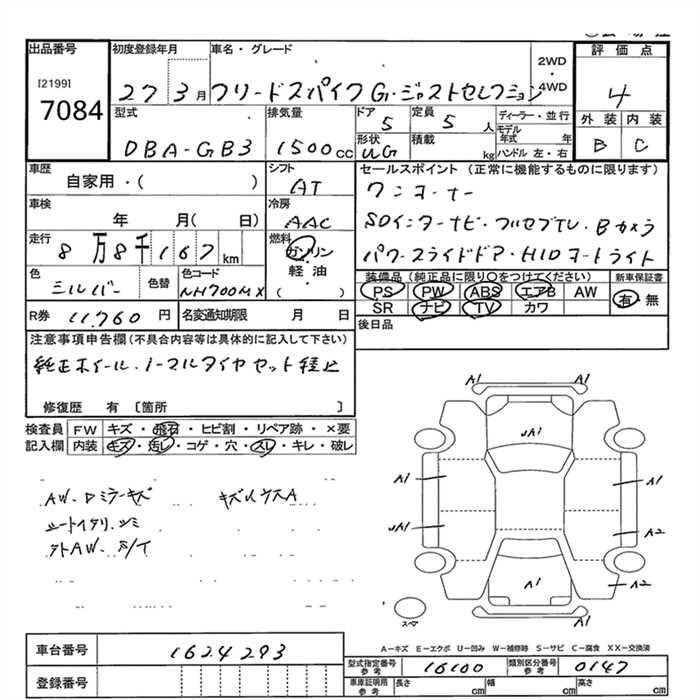 出品番号 初度登録年月 車名・グレード 2WD・4WD 評価点
[2199]
7084
27 3月 フリードスパイク G・ジャストセレクション 4
型式 排気量 ドア 5 定員 5 人 ディーラー・並行 外装 内装
DBA-GB3 1500cc 形状 UG 積載 kg モデル年式 年 ハンドル 左・右 B C
車歴 シフト セールスポイント(正常に機能するものに限ります)
自家用・( ) AT ワンオーナー
車検 冷房
年 月( 日) AAC SDインターナビ・フルセグTV・Bカメラ
走行 燃料 パワースライドドア・HIDオートライト
8万8千167km ガソリン・軽油( )
色 色替 色コード 装備品(純正品に限り○をつけてください) 新車保証書
シルバー NH700MX PS PW ABS エアB AW 有・無
SR ナビ TV カワ
R券 11,760円 名変通知期限 月 日 後日品
注意事項申告欄(不具合内容等は具体的に記入して下さい)
純正ホイール・ノーマルタイヤセット積込
修復歴 有〔箇所 〕
検査員記入欄 FW キズ・飛石・ヒビ割・リペア跡・×要
内装 キズ・汚レ・コゲ・穴・スレ・キレ・破レ
A1 A1
UA1
A1 A1
UA1 A2
A1 A2
A1
スペア
AW・ドミラーキズ キズ
シート
外AW・S/T
A-キズ E-エクボ U-凹み W-補修跡 S-サビ C-腐食 XX-交換済
車台番号 1624293
型式指定番号 参考 16100 類別区分番号 参考 0147
登録番号 車庫証明用 参考 長さ cm 幅 cm 高さ cm